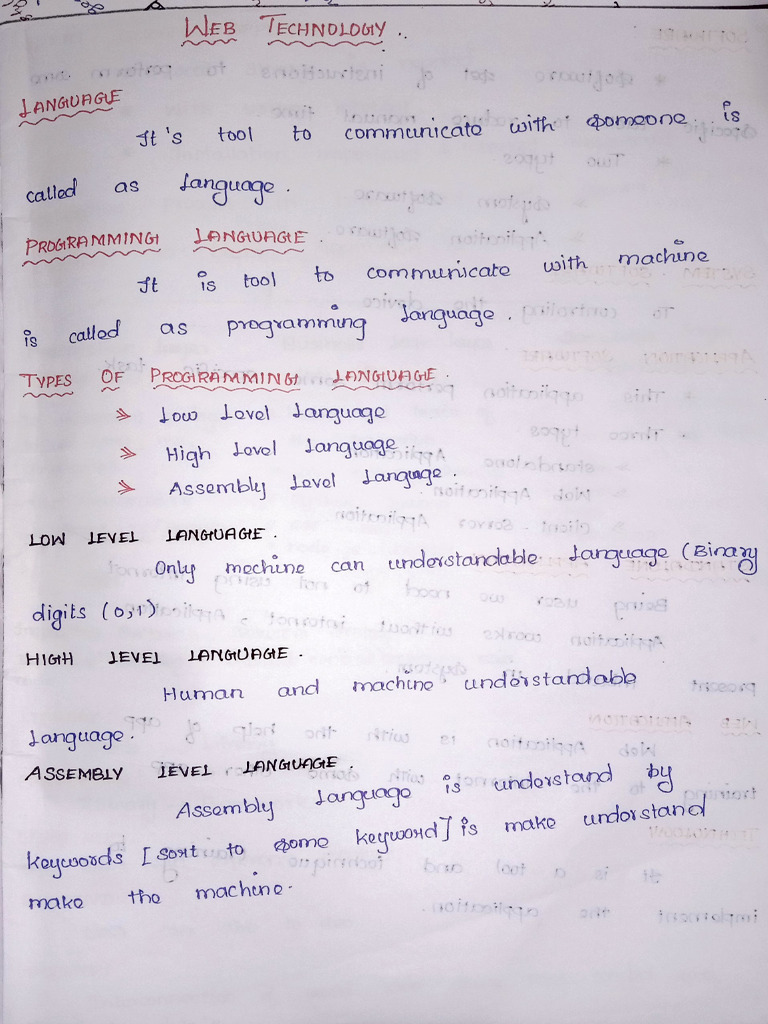 WEB TECHNOLOGY.
LANGUAGE
It's tool to communicate with someone is
called as language.
PROGRAMMING LANGUAGE.
It is tool to communicate with machine
is called as programming language.
TYPES OF PROGRAMMING LANGUAGE.
» Low Level Language
» High Level Language
» Assembly Level Language.
LOW LEVEL LANGUAGE.
Only mechine can understandable language (Binary
digits (0,1)
HIGH LEVEL LANGUAGE.
Human and machine understandable
language.
ASSEMBLY LEVEL LANGUAGE.
Assembly language is understand by
keywords [sort to some keyword] is make understand
make the machine.